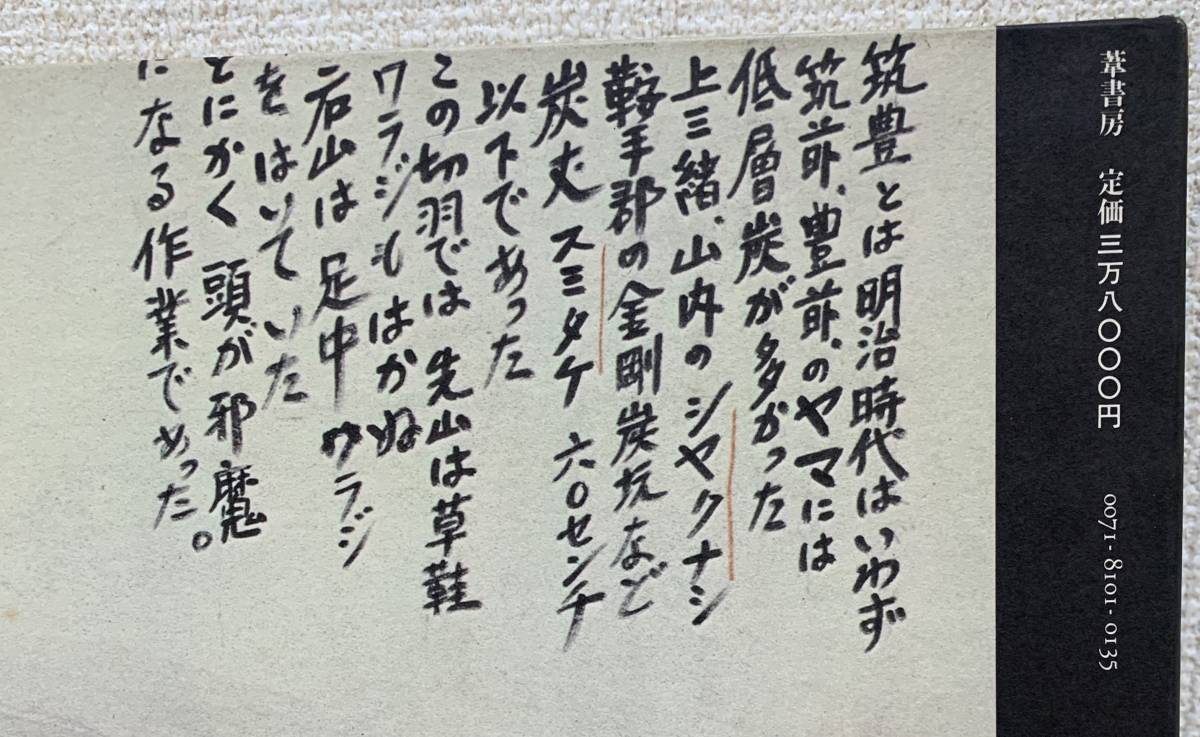 葦書房　定価三万八〇〇〇円　0071-8101-0135
筑豊とは明治時代はいわず
筑前、豊前、のヤマには
低層炭が多かった
上三緒、山内のシヤクナシ
鞍手郡の金剛炭坑など
炭丈スミタケ 六〇センチ
以下であった
この切羽では 先山は草鞋
ワラジもはかぬ
后山は足中 ワラジ
をはいていた
とにかく 頭が邪魔
になる作業であった。